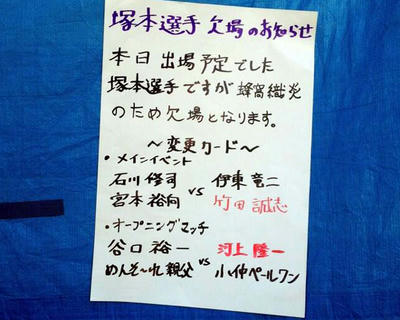 塚本選手 欠場のお知らせ
本日 出場予定でした
塚本選手ですが 蜂窩織炎
のため欠場となります。
〜変更カード〜
・メインイベント
石川修司 vs 伊東竜二
宮本裕向 竹田誠志
・オープニングマッチ
谷口裕一 vs 河上隆一
めんそ〜れ親父 小仲ペールワン